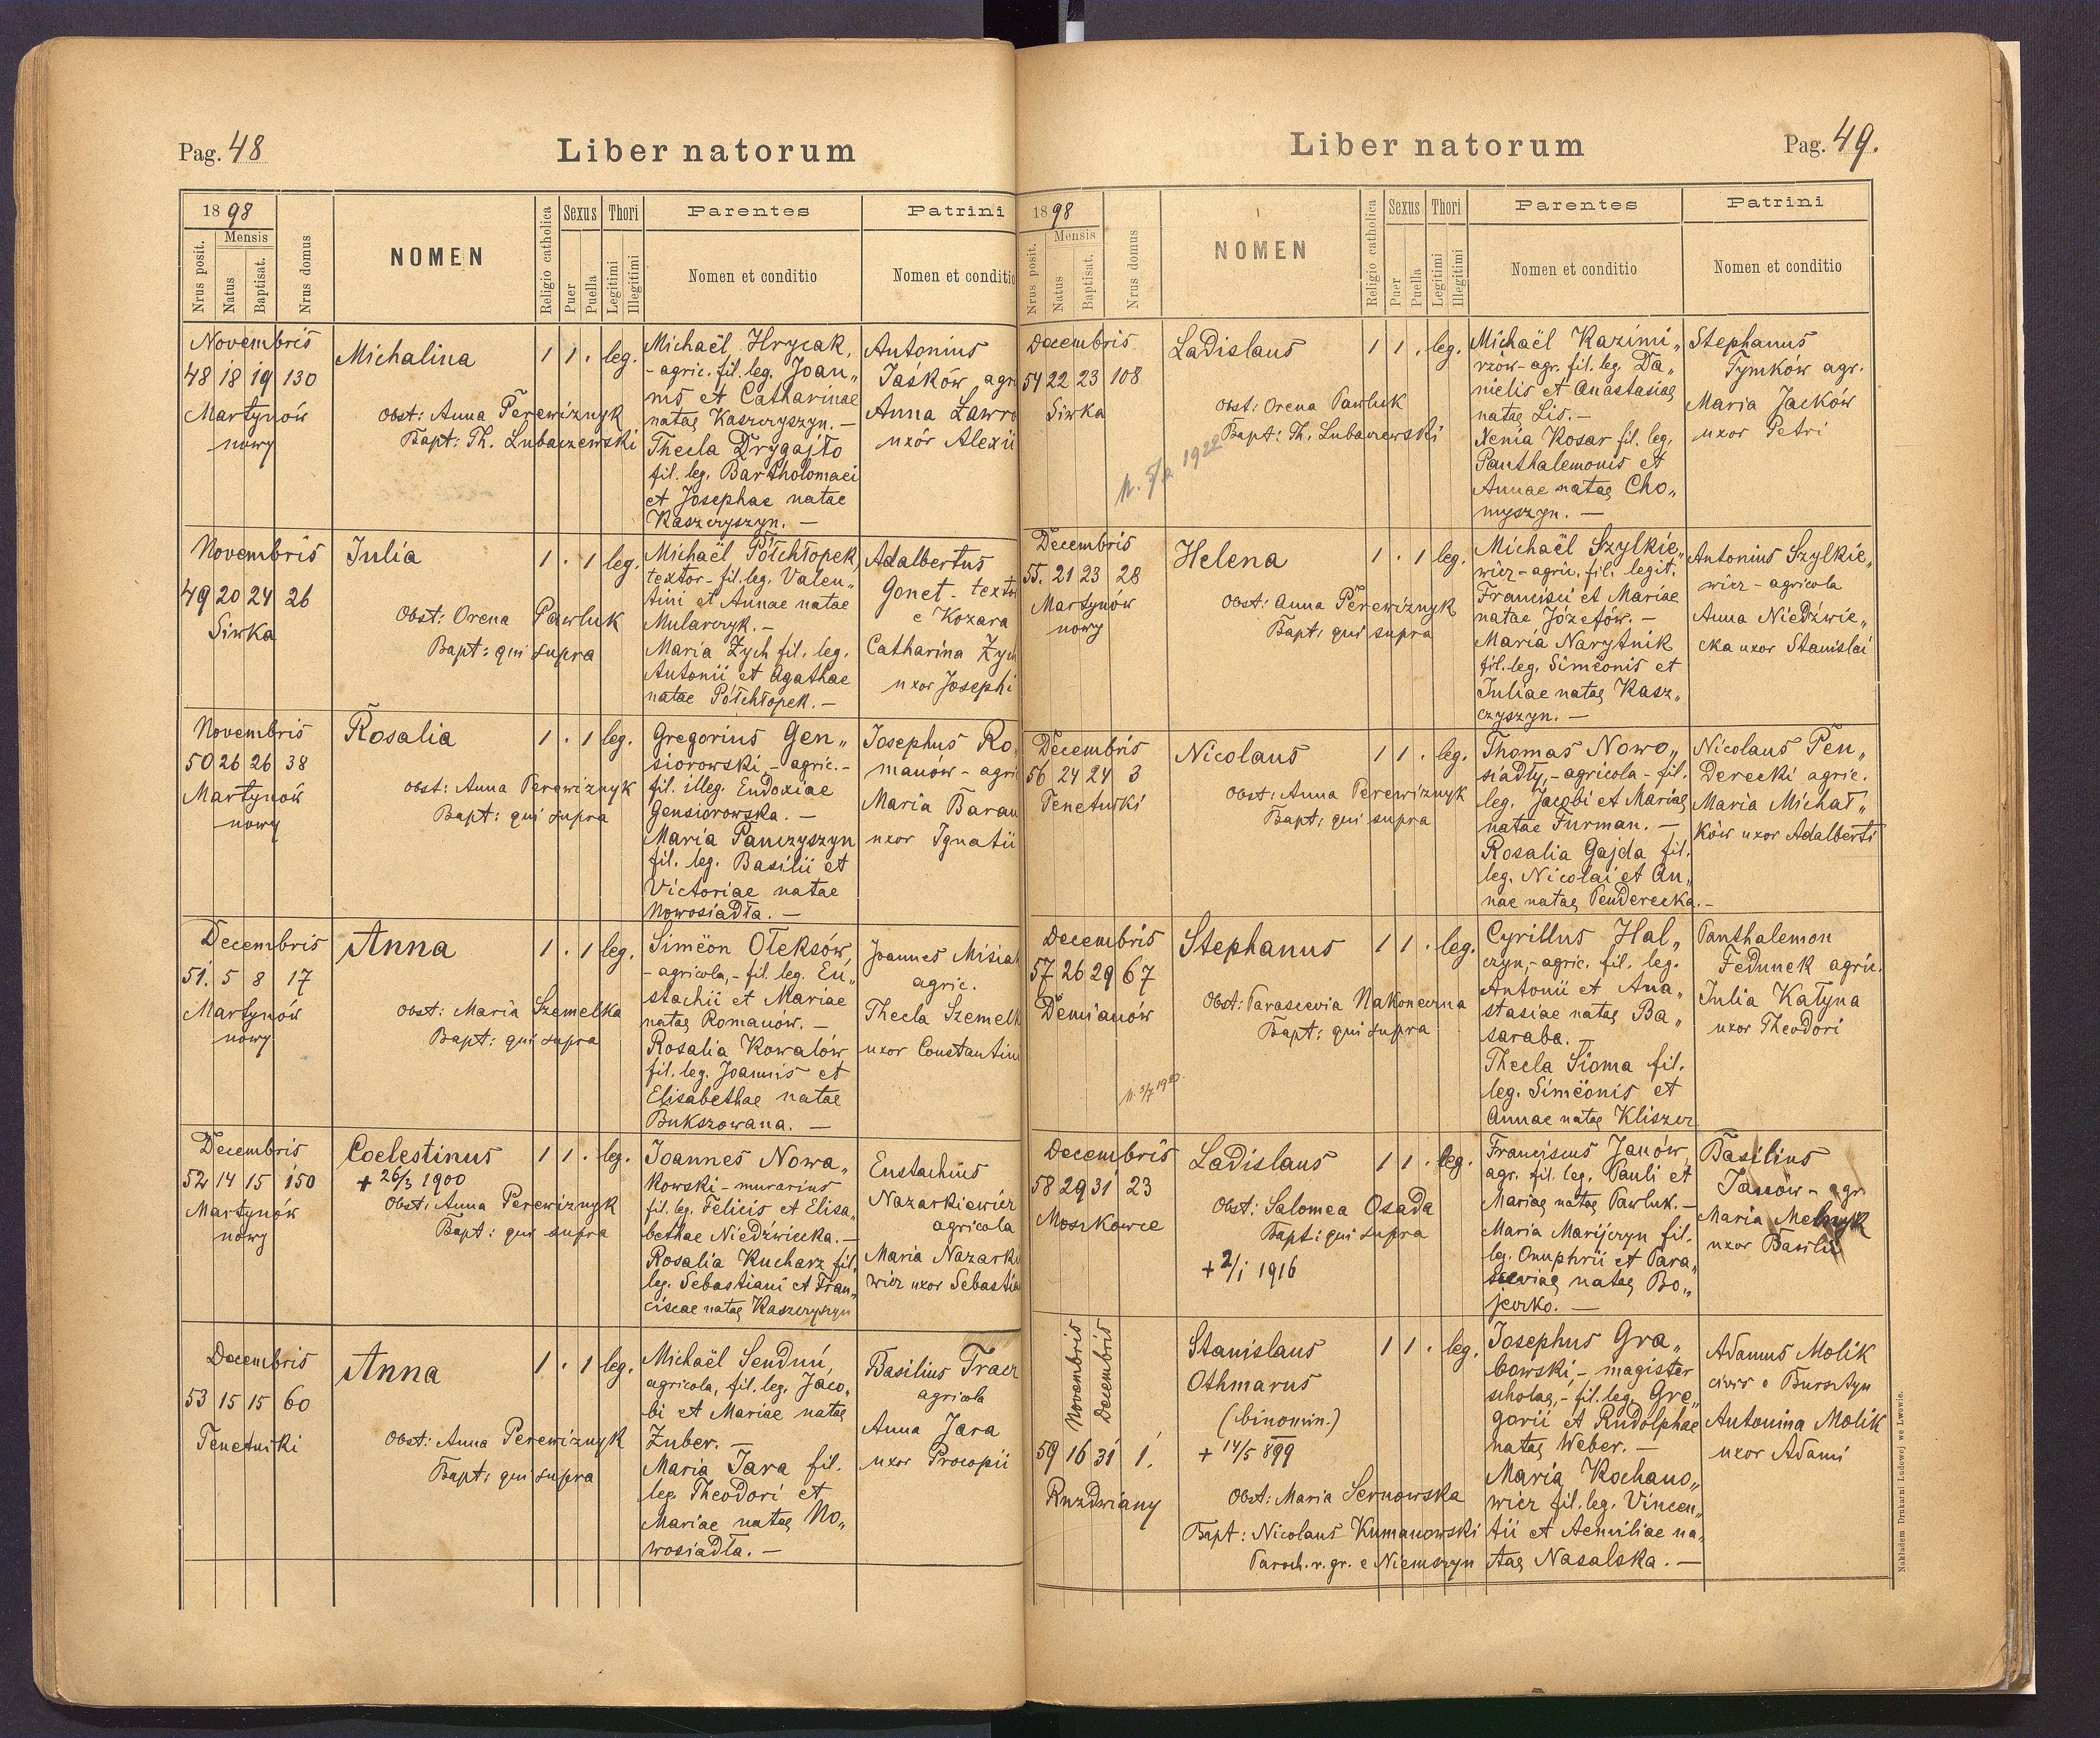 Pag. 48
Liber natorum
1898
Nrus posit.
Mensis
Natus
Baptisat.
Nrus domus
NOMEN
Religio catholica
Sexus
Puer
Puella
Thori
Legitimi
Illegitimi
Parentes
Nomen et conditio
Patrini
Nomen et conditio
Novembris
48 18 19 130
Martynów
nowy
Michalina
Obst: Anna Perewiznyk
Bapt: Th. Lubaczewski
1 1 . leg.
Michaël Hrycak,
- agric. fil. leg. Joan„
nis et Catharinae
natae Kaszczyszyn. -
Thecla Drygajło
fil. leg. Bartholomaei
et Josephae natae
Kaszczyszyn. -
Antonius
Jaśków agr
Anna Ławro
uxor Alexii
Novembris
49 20 24 26
Siwka
Julia
Obst: Orena Pawluk
Bapt: qui supra
1 . 1 leg.
Michaël Półchłopek,
textor - fil. leg. Valen„
tini et Annae natae
Mularczyk. -
Maria Zych fil. leg.
Antonii et Agathae
natae Półchłopek. -
Adalbertus
Gonet - textor
e Kozara
Catharina Zych
uxor Josephi
Novembris
50 26 26 38
Martynów
nowy
Rosalia
Obst: Anna Perewiznyk
Bapt: qui supra
1 . 1 leg.
Gregorius Gen„
siorowski, - agric. -
fil. illeg. Eudoxiae
Gensiorowska. -
Maria Panczyszyn
fil. leg. Basilii et
Victoriae natae
Nowosiadła. -
Josephus Ro
manów - agri
Maria Baran
uxor Ignatii
Decembris
51. 5 8 17
Martynów
nowy
Anna
Obst: Maria Szemelka
Bapt: qui supra
1 . 1 leg.
Simëon Oleksów,
- agricola, - fil. leg. Eu„
stachii et Mariae
natae Romanów. -
Rosalia Kowalów
fil. leg. Joannis et
Elisabethae natae
Bukszowana. -
Joannes Misia
agric.
Thecla Szemelk
uxor Constantini
Decembris
52 14 15 150
Martynów
nowy
Coelestinus
+ 26/3 1900
Obst: Anna Perewiznyk
Bapt: qui supra
1 1 . leg.
Joannes Nowa„
kowski - murarius
fil. leg. Felicis et Elisa„
bethae Niedźwiecka. -
Rosalia Kucharz fil.
leg. Sebastiani et Fran„
ciscae natae Kaszczyszyn
Eustachius
Nazarkiewicz
agricola
Maria Nazarki
wicz uxor Sebastia
Decembris
53 15 15 60
Tenetniki
Anna
Obst: Anna Perewiznyk
Bapt: qui supra
1 . 1 leg.
Michaël Senduń,
agricola, fil. leg. Jaco„
bi et Mariae natae
Zuber. -
Maria Jara fil.
leg. Theodori et
Mariae natae No„
wosiadła. -
Basilius Tracz
agricola
Anna Jara
uxor Procopii
Liber natorum
Pag. 49.
1898
Nrus posit.
Mensis
Natus
Baptisat.
Nrus domus
NOMEN
Religio catholica
Sexus
Puer
Puella
Thori
Legitimi
Illegitimi
Parentes
Nomen et conditio
Patrini
Nomen et conditio
Decembris
54 22 23 108
Siwka
Ladislaus
Obst: Orena Pawluk
Bapt: Th. Lubaczewski
1 1 . leg.
Michaël Kazimi„
rzów - agr. fil. leg. Da„
nielis et Anastasiae
natae Lis. -
Xenia Kosar fil. leg.
Panthalemonis et
Annae natae Cho„
myszyn. -
Stephanus
Tymków agr.
Maria Jacków
uxor Petri
Decembris
55. 21 23 28
Martynów
nowy
Helena
Obst: Anna Perewiznyk
Bapt: qui supra
1 . 1 leg.
Michaël Szylkie„
wicz - agric. fil. legit.
Francisci et Mariae
natae Józefów. -
Maria Narytnik
fil. leg. Simëonis et
Juliae natae Kasz„
czyszyn. -
Antonius Szylkie„
wicz - agricola
Anna Niedźwie„
cka uxor Stanislai
Decembris
56 24 24 3
Tenetniki
Nicolaus
Obst: Anna Perewiznyk
Bapt: qui supra
1 1 . leg.
Thomas Nowo„
siadły, - agricola - fil.
leg. Jacobi et Mariae
natae Furman. -
Rosalia Gajda fil.
leg. Nicolai et An„
nae natae Penderecka. -
Nicolaus Pen„
derecki agric.
Maria Michał„
ków uxor Adalberti
Decembris
57 26 29 67
Demianów
Stephanus
Obst: Parascevia Nakoneczna
Bapt: qui supra
1 1 . leg.
Cyrillus Hal„
czyn, - agric. fil. leg.
Antonii et Ana„
stasiae natae Ba„
saraba. -
Thecla Sioma fil.
leg. Simëonis et
Annae natae Kliszcz
Panthalemon
Fedunek agric.
Julia Kałyna
uxor Theodori
Decembris
58 29 31 23
Moszkowce
Ladislaus
Obst: Salomea Osada
Bapt: qui supra
+ 2/1 1916
1 1 . leg.
Franciscus Janów,
agr. fil. leg. Pauli et
Mariae natae Pawluk. -
Maria Marijczyn fil.
leg. Onuphrii et Para„
sceviae natae Bo„
jeczko. -
Basilius
Janów - agr.
Maria Melnyk
uxor Basilii
Novembris
Decembris
59 16 31 1.
Ruzdwiany
Stanislaus
Othmarus
(binomin.)
+ 14/5 899
Obst: Maria Sernowska
Bapt: Nicolaus Kumanowski
Paroch. r. gr. e Niemszyn
1 1 . leg.
Josephus Gra„
bowski, - magister
scholae, - fil. leg. Gre„
gorii et Rudolphae
natae Weber. -
Maria Kochano„
wicz fil. leg. Vincen„
tii et Aemiliae na„
tae Nasalska. -
Adamus Molik
civis e Bursztyn
Antonina Molik
uxor Adami
Nakładem Drukarni Ludowej we Lwowie.